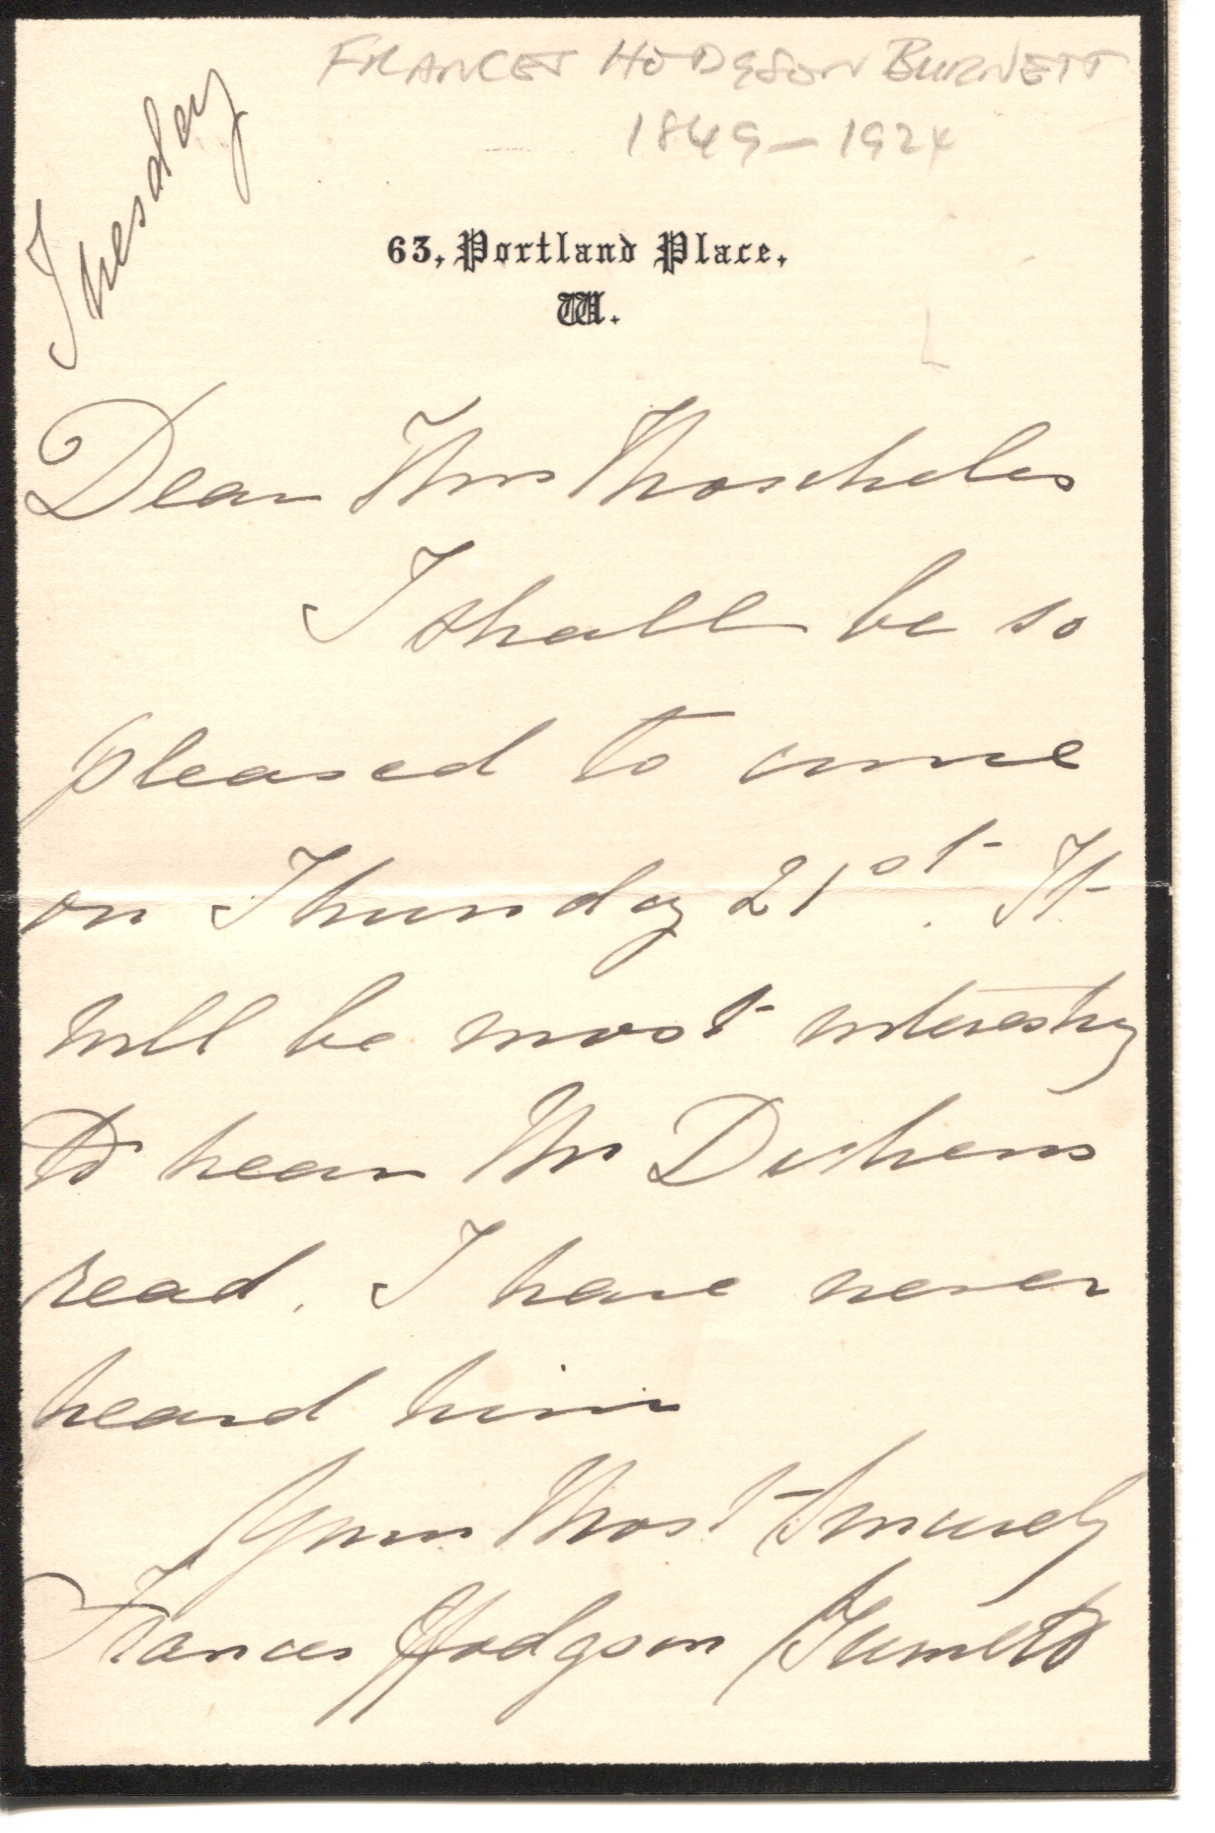 FRANCES HODGSON BURNETT
1849 – 1924
Tuesday
63, Portland Place,
W.
Dear Mrs Moscheles
I shall be so
pleased to come
on Thursday 21st. It
will be most interesting
to hear Mr Dickens
read. I have never
heard him
Yours Most Sincerely
Frances Hodgson Burnett